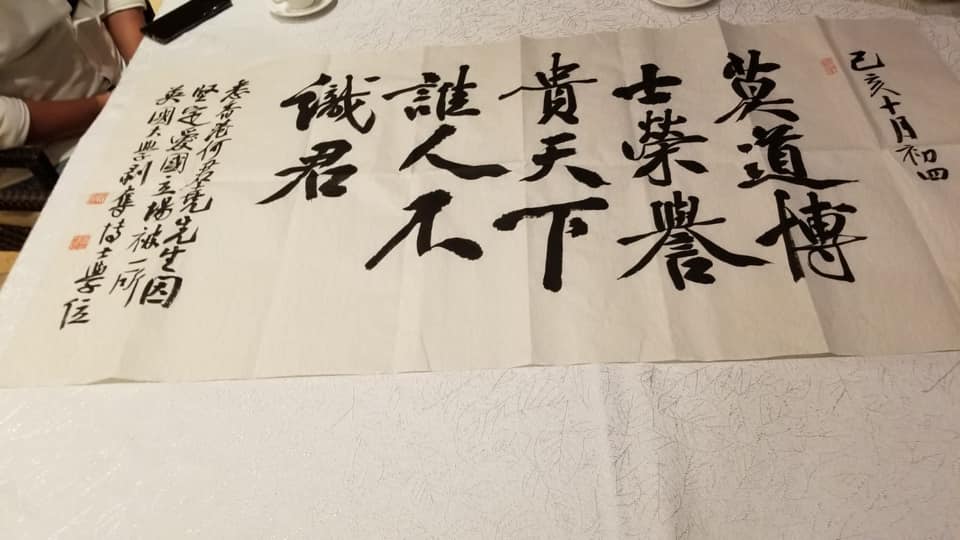 己亥十月初四
莫道博
士榮譽
貴天下
誰人不
識君
悉香港何君尧先生因
坚定爱國立場被一所
英國大學剥奪博士學位